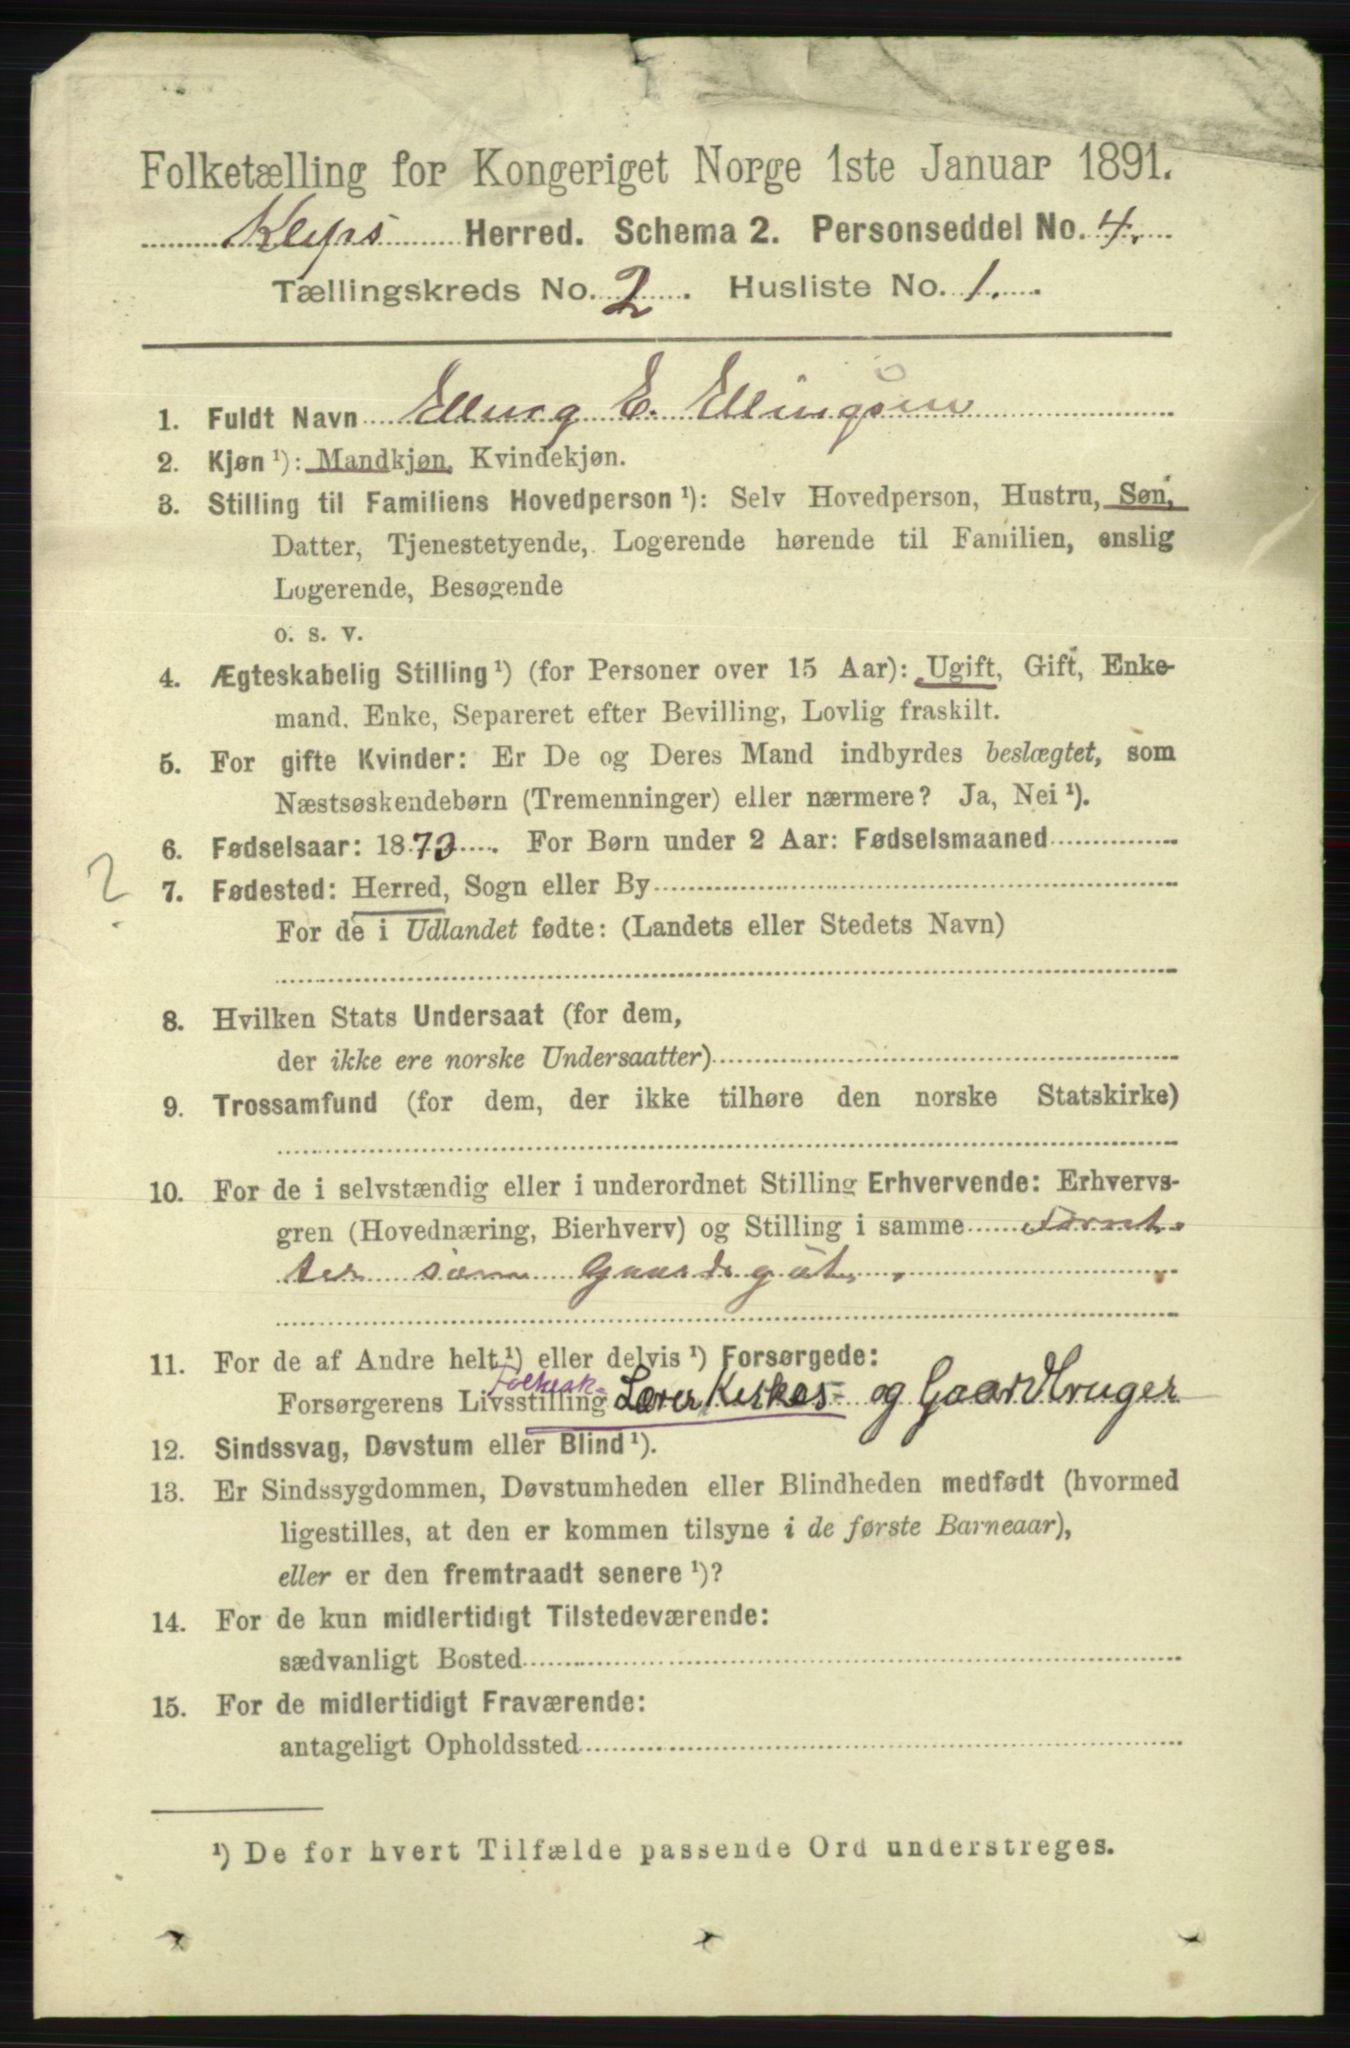 Folketælling for Kongeriget Norge 1ste Januar 1891.
Kleps Herred. Schema 2. Personseddel No. 4.
Tællingskreds No. 2. Husliste No. 1.
1. Fuldt Navn Elling E. Ellingsen
2. Kjøn ¹): Mandkjøn, Kvindekjøn.
3. Stilling til Familiens Hovedperson ¹): Selv Hovedperson, Hustru, Søn,
Datter, Tjenestetyende, Logerende hørende til Familien, enslig
Logerende, Besøgende
o. s. v.
4. Ægteskabelig Stilling ¹) (for Personer over 15 Aar): Ugift, Gift, Enke-
mand, Enke, Separeret efter Bevilling, Lovlig fraskilt.
5. For gifte Kvinder: Er De og Deres Mand indbyrdes beslægtet, som
Næstsøskendebørn (Tremenninger) eller nærmere? Ja, Nei ¹).
6. Fødselsaar: 1873. For Børn under 2 Aar: Fødselsmaaned
? 7. Fødested: Herred, Sogn eller By
For de i Udlandet fødte: (Landets eller Stedets Navn)
8. Hvilken Stats Undersaat (for dem,
der ikke ere norske Undersaatter)
9. Trossamfund (for dem, der ikke tilhøre den norske Statskirke)
10. For de i selvstændig eller i underordnet Stilling Erhvervende: Erhvervs-
gren (Hovednæring, Bierhverv) og Stilling i samme
ter som Gaardsgut.
11. For de af Andre helt ¹) eller delvis ¹) Forsørgede:
Forsørgerens Livsstilling Lærer, Kirkes- og Gaardbruger
12. Sindssvag, Døvstum eller Blind ¹).
13. Er Sindssygdommen, Døvstumheden eller Blindheden medfødt (hvormed
ligestilles, at den er kommen tilsyne i de første Barneaar),
eller er den fremtraadt senere ¹)?
14. For de kun midlertidigt Tilstedeværende:
sædvanligt Bosted
15. For de midlertidigt Fraværende:
antageligt Opholdssted
¹) De for hvert Tilfælde passende Ord understreges.